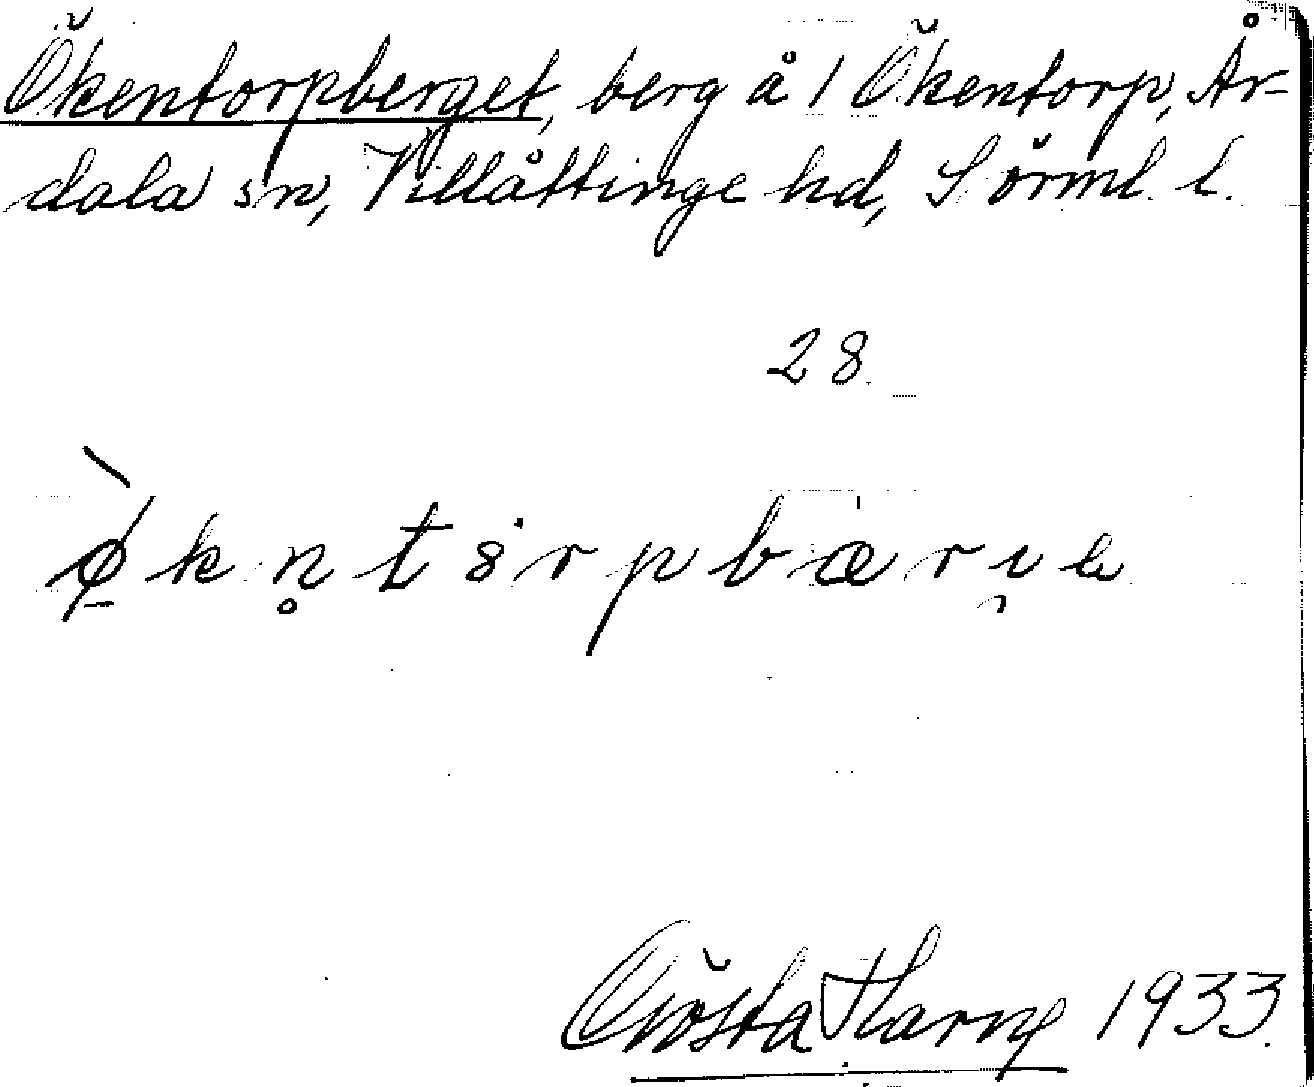 Ökentorpberget, berg å 1 Ökentorp, År-
dala sn, Villåttinge hd, Sörml. l.
28.
Gösta Harny 1933.